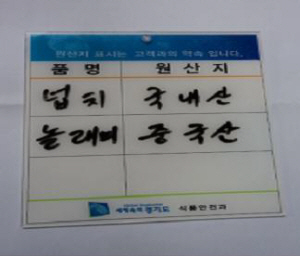 원산지 표시는 고객과의 약속 입니다.
품 명 원 산 지
넙치 국내산
놀래미 중국산
세계속의 경기도 식품안전과